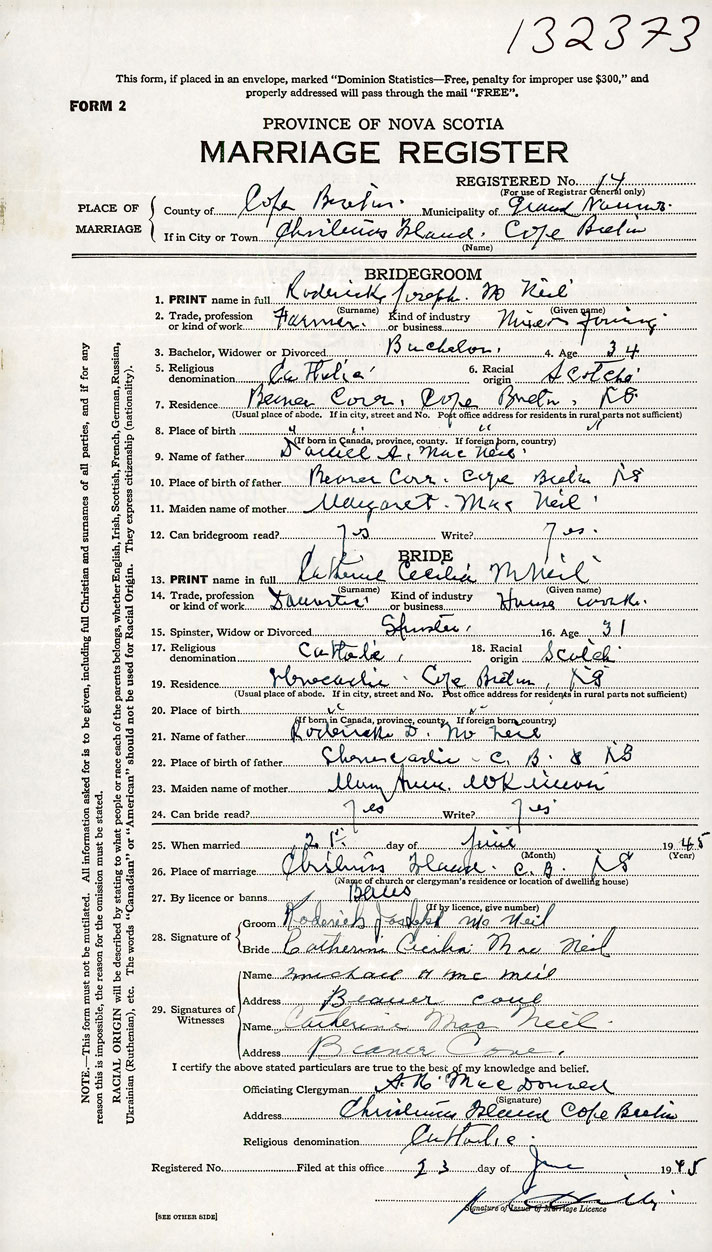 132373
This form, if placed in an envelope, marked "Dominion Statistics—Free, penalty for improper use $300," and
properly addressed will pass through the mail "FREE".
FORM 2
PROVINCE OF NOVA SCOTIA
MARRIAGE REGISTER
REGISTERED No. 14
(For use of Registrar General only)
PLACE OF MARRIAGE
County of Cape Breton. Municipality of Grand Narrows.
If in City or Town Christmas Island. Cape Breton
(Name)
BRIDEGROOM
1. PRINT name in full Roderick Joseph Mc Neil
(Surname) (Given name)
2. Trade, profession or kind of work Farmer. Kind of industry or business
3. Bachelor, Widower or Divorced Bachelor. 4. Age 34
5. Religious denomination Catholic 6. Racial origin Scotch
7. Residence Beaver Cove, Cape Breton, NS
(Usual place of abode. If in city, street and No. Post office address for residents in rural parts not sufficient)
8. Place of birth " " " "
(If born in Canada, province, county. If foreign born, country)
9. Name of father Daniel A. Mac Neil
10. Place of birth of father Beaver Cove. Cape Breton NS
11. Maiden name of mother Margaret Mac Neil
12. Can bridegroom read? Yes Write? Yes.
BRIDE
13. PRINT name in full Catherine Cecilia McNeil
(Surname) (Given name)
14. Trade, profession or kind of work Domestic Kind of industry or business House work.
15. Spinster, Widow or Divorced Spinster. 16. Age 31
17. Religious denomination Catholic, 18. Racial origin Scotch
19. Residence Cape Breton, NS
(Usual place of abode. If in city, street and No. Post office address for residents in rural parts not sufficient)
20. Place of birth " "
(If born in Canada, province, county. If foreign born, country)
21. Name of father Roderick D. Mc Neil
22. Place of birth of father C. B. NS
23. Maiden name of mother Mary Ann McKinnon
24. Can bride read? Yes Write? Yes
25. When married 21st day of June 1945
(Month) (Year)
26. Place of marriage Christmas Island. C. B. NS
(Name of church or clergyman's residence or location of dwelling house)
27. By licence or banns
(If by licence, give number)
28. Signature of
Groom Roderick Joseph Mc Neil
Bride Catherine Cecilia Mac Neil
29. Signatures of Witnesses
Name Michael H Mc Neil
Address Beaver Cove
Name Catherine Mac Neil
Address Beaver Cove.
I certify the above stated particulars are true to the best of my knowledge and belief.
Officiating Clergyman MacDonald
(Signature)
Address Christmas Island Cape Breton
Religious denomination Catholic.
Registered No. Filed at this office 23 day of June 1945
Signature of Issuer of Marriage Licence
[SEE OTHER SIDE]
NOTE.—This form must not be mutilated. All information asked for is to be given, including full Christian and surnames of all parties, and if for any
reason this is impossible, the reason for the omission must be stated.
RACIAL ORIGIN will be described by stating to what people or race each of the parents belongs, whether English, Irish, Scottish, French, German, Russian,
Ukrainian (Ruthenian), etc. The words "Canadian" or "American" should not be used for Racial Origin. They express citizenship (nationality).